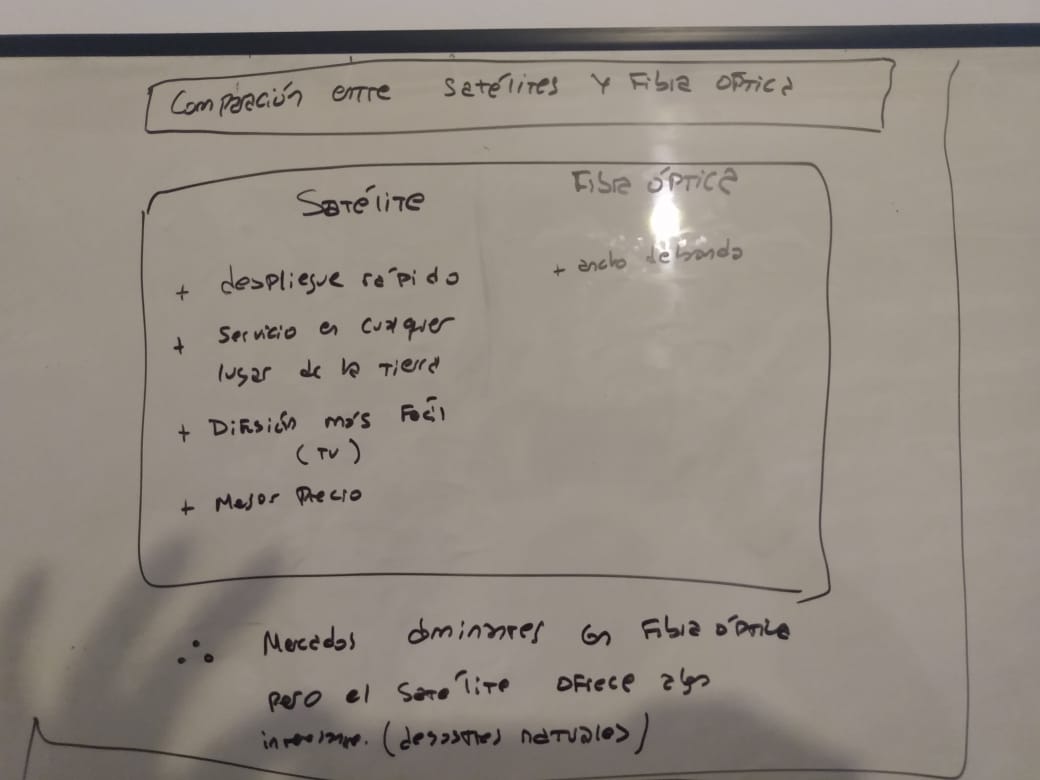 Comparación entre Satélites y Fibra óptica
Satélite
Fibra óptica
+ despliegue rápido
+ Servicio en cualquier
lugar de la Tierra
+ Difusión más Fácil
(TV)
+ Mejor Precio
+ ancho de banda
∴ Mercados dominantes en Fibra óptica
pero el Satélite ofrece algo
interesante. (desastres naturales)